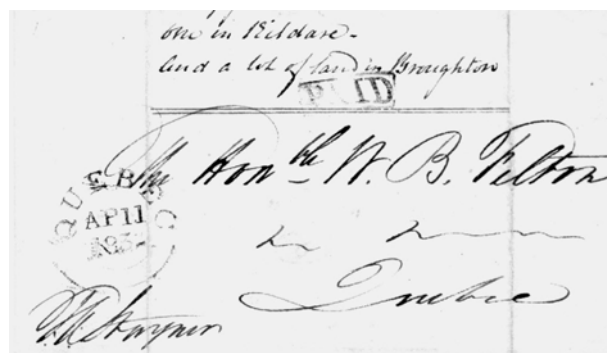 one in Kildare-
and a lot of land in Broughton
PAID
The Honble W. B. Felton
QUEBEC
AP 11
Quebec